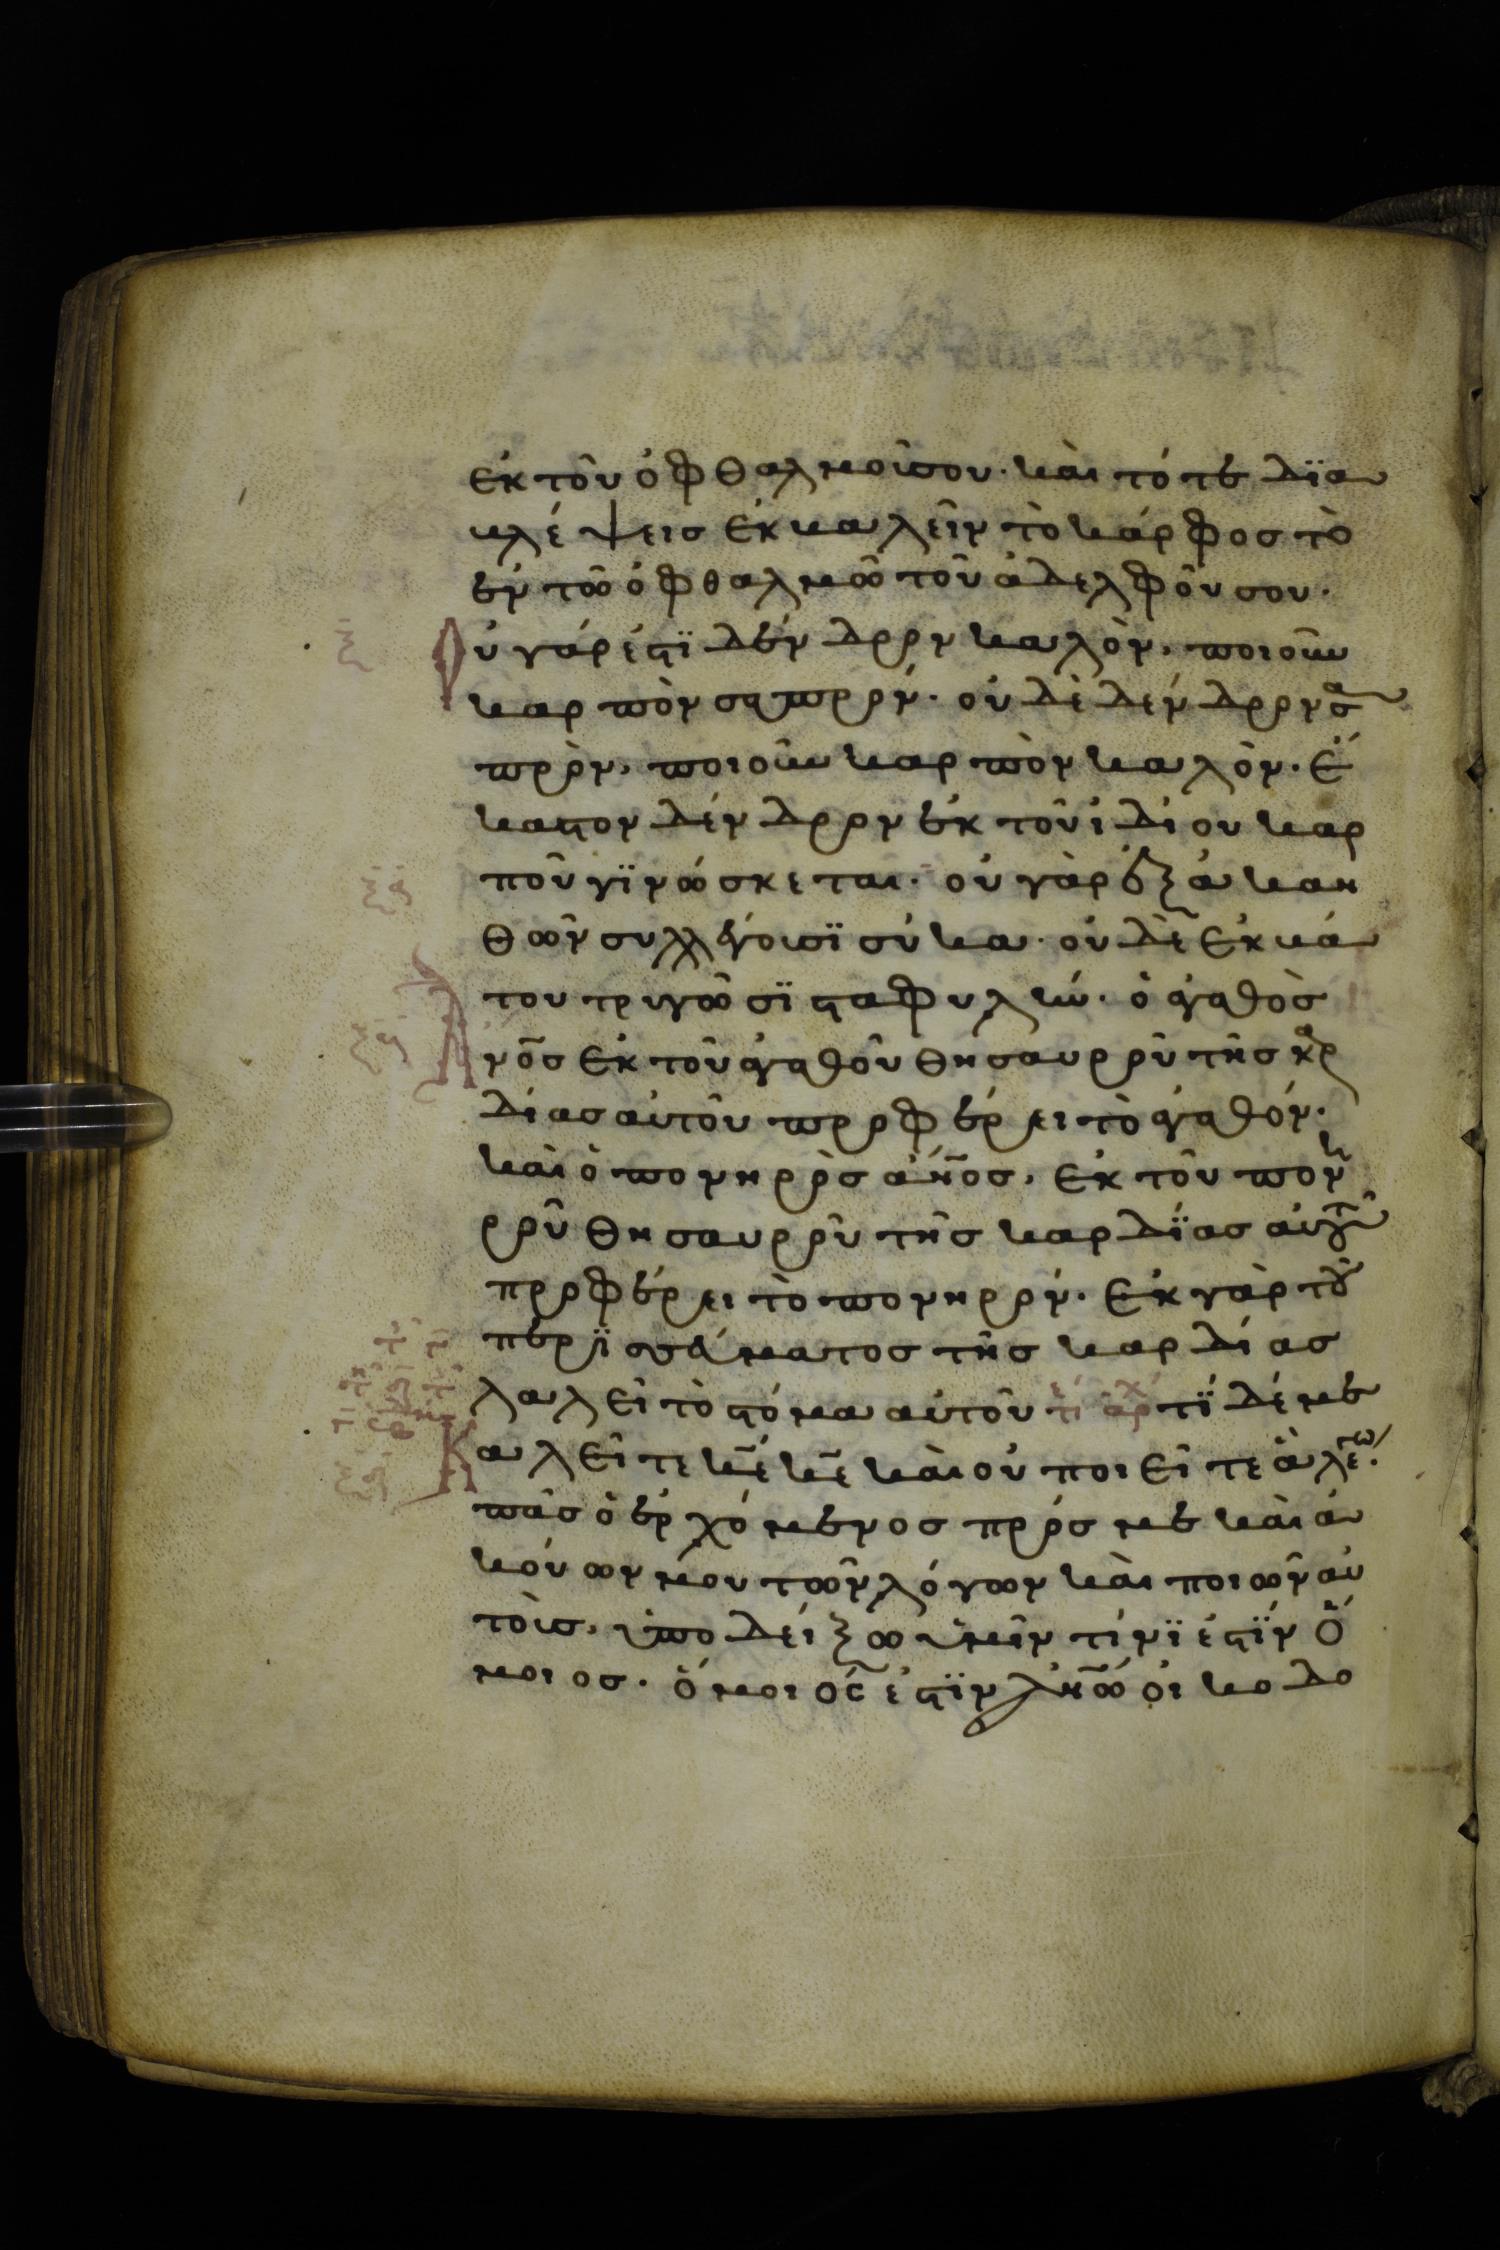 ἐκ τοῦ ὀφθαλμοῦ σου· καὶ τότε δϊα
βλέψεις ἐκβαλεῖν τὸ κάρφος τὸ
ἐν τῶ ὀφθαλμῶ τοῦ ἀδελφοῦ σου·
ξ Οὐ γάρ ἐστϊ δένδρον καλὸν, ποιοῦν
καρπὸν σαπρόν· οὐδὲ δένδρον σα
πρὸν, ποιοῦν καρπὸν καλὸν· ἕ
καστον δένδρον ἐκ τοῦ ἰδίου καρ
ποῦ γϊνώσκεται· οὐ γὰρ ἐξ ἀκαν
θῶν συλλέγουσϊ σύκα· οὐδὲ ἐκ βά
του τρυγῶσϊ σταφυλήν· ὁ ἀγαθὸς
Ἀνο̅ς ἐκ τοῦ ἀγαθοῦ θησαυροῦ τῆς καρ
δίας αὐτοῦ προφέρει τὸ ἀγαθόν·
καὶ ὁ πονηρὸς ἀν̅ο̅ς, ἐκ τοῦ πονη
ροῦ θησαυροῦ τῆς καρδϊας αὐτοῦ
προφέρει τὸ πονηρόν· ἐκ γὰρ τοῦ
περϊσσεύματος τῆς καρδίας
λαλεῖ τὸ στόμα αὐτοῦ τϊ δέ με
Καλεῖτε κ̅ε̅ κ̅ε̅ καὶ οὐ ποιεῖτε ἃ λέγω·
πᾶς ὁ ἐρχόμενος πρός με καὶ ἀ
κούων μου τῶν λόγων καὶ ποιῶν αὐ
τοὺς, ὑποδείξω ὑμῖν τίνϊ ἐστϊν ὅ
μοιος· ὅμοιός ἐστϊν ἀν̅ω̅ οἰκοδο